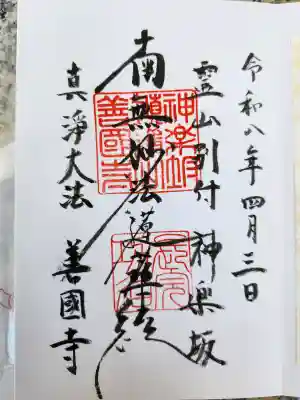 令和八年四月三日
霊山別付 神楽坂
南無妙法蓮華経
真淨大法 善國寺
神楽坂
善國寺